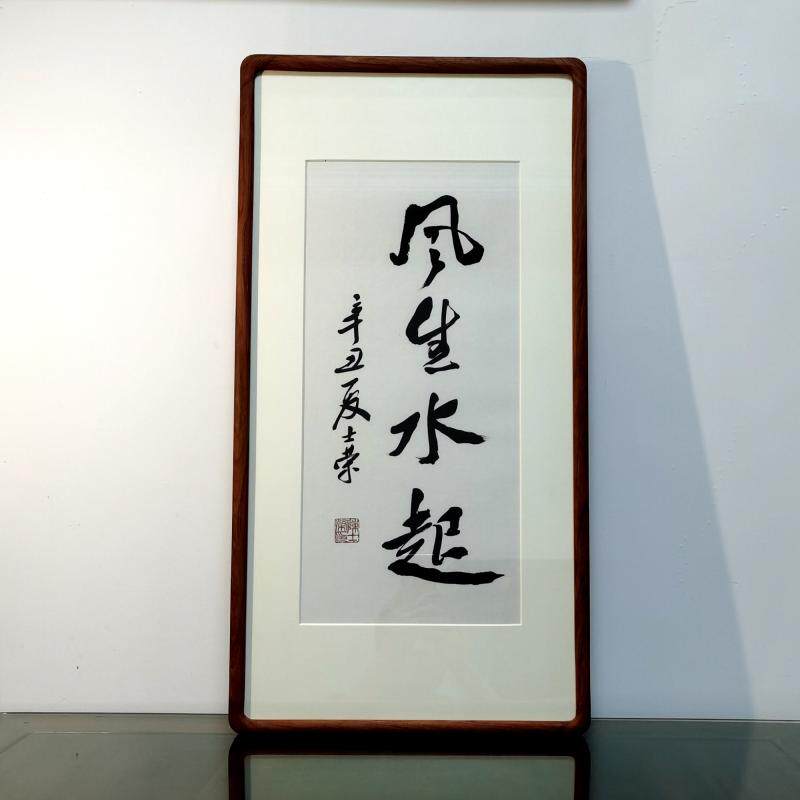 风生水起
辛丑夏士荣